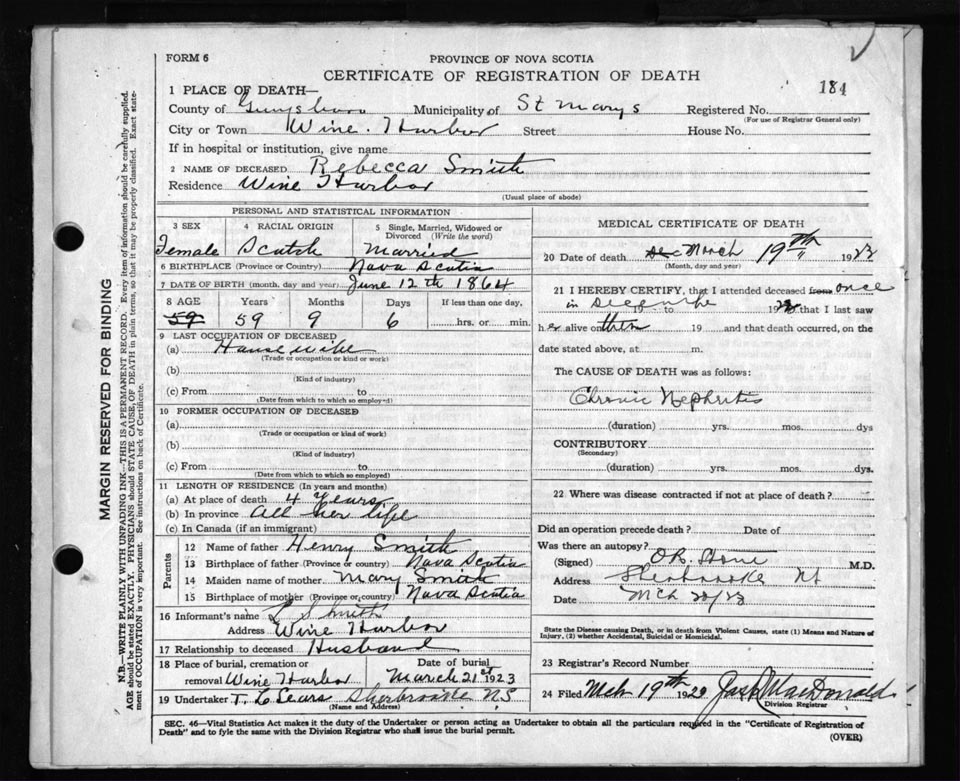 FORM 6
PROVINCE OF NOVA SCOTIA
CERTIFICATE OF REGISTRATION OF DEATH
184
1 PLACE OF DEATH—
County of Guysboro Municipality of St Marys Registered No.
(For use of Registrar General only)
City or Town Wine Harbor Street House No.
If in hospital or institution, give name
2 NAME OF DECEASED Rebecca Smith
Residence Wine Harbor
(Usual place of abode)
MARGIN RESERVED FOR BINDING
N.B.—WRITE PLAINLY WITH UNFADING INK—THIS IS A PERMANENT RECORD. Every item of information should be carefully supplied.
AGE should be stated EXACTLY. PHYSICIANS should STATE CAUSE OF DEATH in plain terms, so that it may be properly classified. Exact state-
ment of OCCUPATION is very important. See instructions on back of Certificate.
PERSONAL AND STATISTICAL INFORMATION
3 SEX 4 RACIAL ORIGIN 5 Single, Married, Widowed or
Divorced (Write the word)
Female Scotch Married
6 BIRTHPLACE (Province or Country) Nova Scotia
7 DATE OF BIRTH (month, day and year) June 12th 1864
8 AGE Years Months Days If less than one day,
59 59 9 6 hrs. or min.
9 LAST OCCUPATION OF DECEASED
(a) House wife
(Trade or occupation or kind or work)
(b)
(Kind of industry)
(c) From to
(Date from which to which so employed)
10 FORMER OCCUPATION OF DECEASED
(a)
(Trade or occupation or kind of work)
(b)
(Kind of industry)
(c) From to
(Date from which to which so employed)
11 LENGTH OF RESIDENCE (In years and months)
(a) At place of death 4 years
(b) In province all her life
(c) In Canada (if an immigrant)
Parents
12 Name of father Henry Smith
13 Birthplace of father (Province or country) Nova Scotia
14 Maiden name of mother Mary Smith
15 Birthplace of mother (Province or country) Nova Scotia
16 Informant's name L Smith
Address Wine Harbor
17 Relationship to deceased Husband
18 Place of burial, cremation or Date of burial
removal Wine Harbor March 21st 1923
19 Undertaker T. C Sears Sherbrooke NS
(Name and Address)
MEDICAL CERTIFICATE OF DEATH
20 Date of death March 19th 1923
(Month, day and year)
21 I HEREBY CERTIFY, that I attended deceased from once
in December 19 to 192 that I last saw
her alive on then 19 and that death occurred, on the
date stated above, at m.
The CAUSE OF DEATH was as follows:
Chronic Nephritis
(duration) yrs. mos. dys
CONTRIBUTORY
(Secondary)
(duration) yrs. mos. dys.
22 Where was disease contracted if not at place of death?
Did an operation precede death? Date of
Was there an autopsy?
(Signed) M.D.
Address Sherbrooke NS
Date Mch 23/23
State the Disease causing Death, or in death from Violent Causes, state (1) Means and Nature of
Injury, (2) whether Accidental, Suicidal or Homicidal.
23 Registrar's Record Number
24 Filed Mch 19th 1920 MacDonald
Division Registrar
SEC. 46—Vital Statistics Act makes it the duty of the Undertaker or person acting as Undertaker to obtain all the particulars required in the "Certificate of Registration of
Death" and to fyle the same with the Division Registrar who shall issue the burial permit.
(OVER)